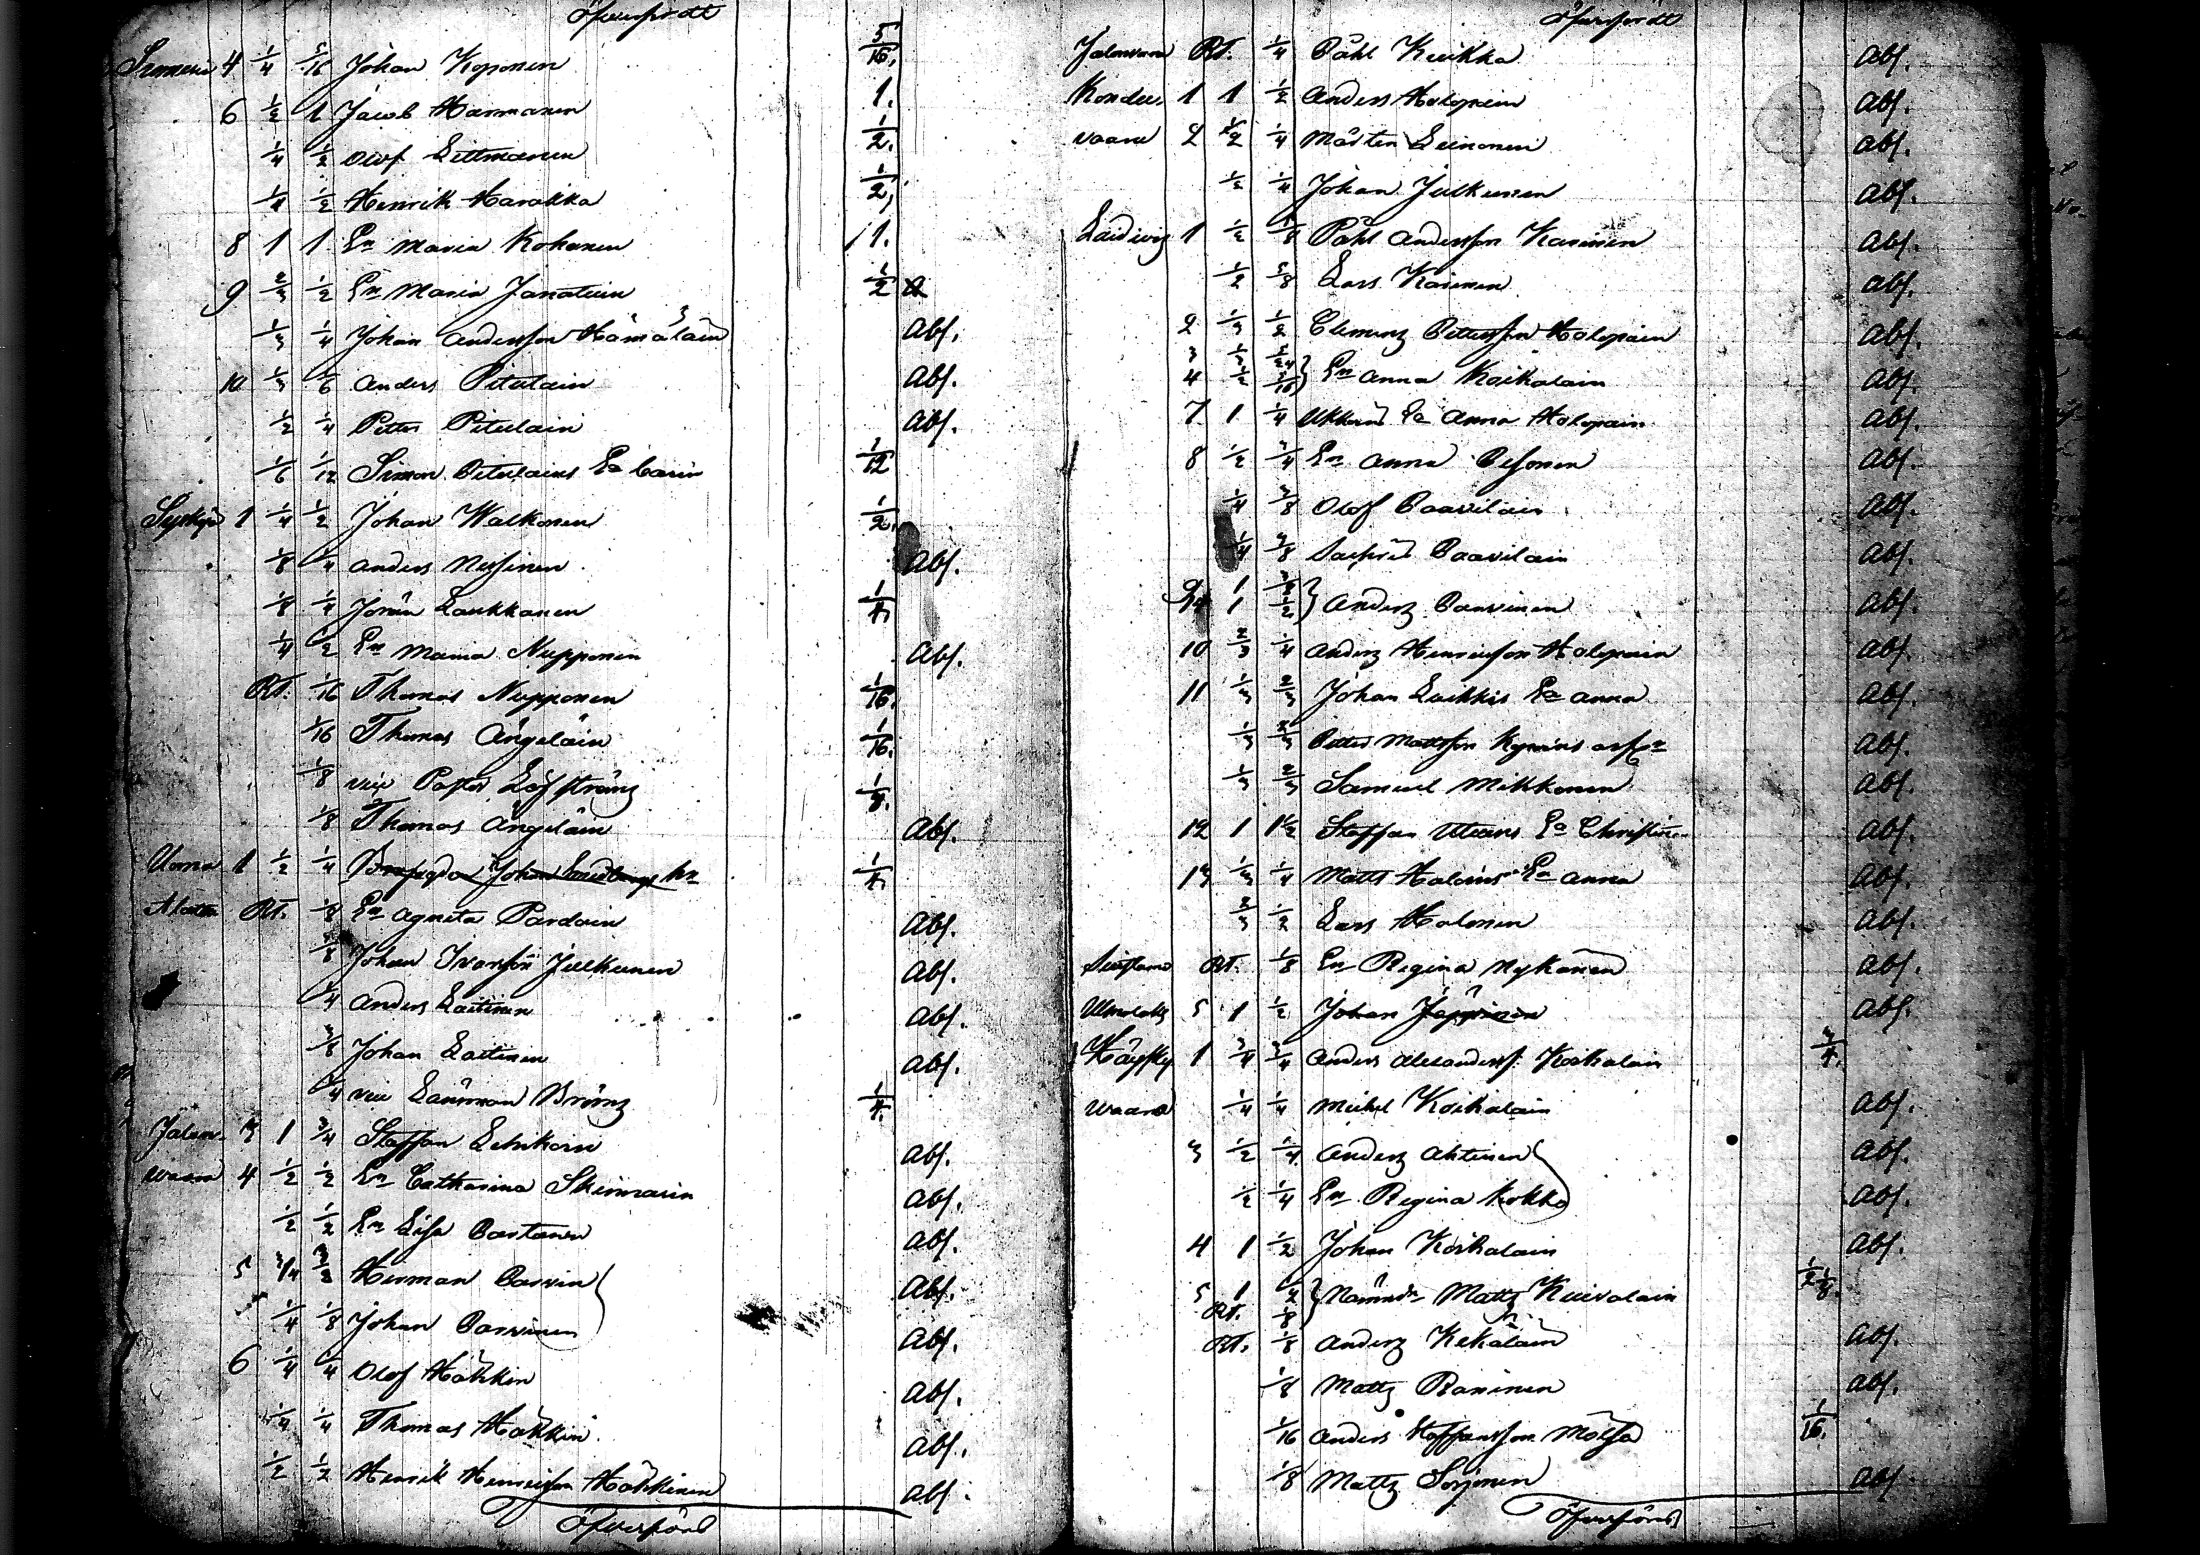 Öfverfördt
4 1/4 5/16 Johan Koponen 5/16.
6 1/2 1 Jacob Harmanen 1.
1/4 1/2 Olof Littmanen 1/2.
1/4 1/2 Henrik Harakka 1/2,
8 1 1 En Maria Kohonen 1.
9 2/3 1/2 En Maria Janatuin 1/2
1/3 1/4 Johan Andersson Hämäläin Abs.
10 1/3 1/6 Anders Pitulain Abs.
1/2 1/4 Petter Pitulain Abs.
1/6 1/12 Simon Pitulains Ea Carin 1/12
Syskyä 1 1/4 1/2 Johan Walkonen 1/2.
1/8 1/4 Anders Nissinen Abs.
1/8 1/4 Jöran Laukkanen 1/4.
1/4 1/2 En Maria Nupponen Abs.
Rt. 1/16 Thomas Nupponen 1/16.
1/16 Thomas Ängeläin 1/16.
1/8 vice Pastor Löfström 1/8.
1/8 Thomas Ängeläin Abs.
Uoma 1 1/2 1/4 Johan 1/4.
Rt. 1/8 En Agneta Pardain Abs.
Johan Ivarsson Julkunen Abs.
1/4 Anders Laitinen Abs.
3/8 Johan Laitinen Abs.
1/4 vice Länsman 1/4.
Jalon- 3 1 3/4 Staffan Lehikoin Abs.
waara 4 1/2 1/2 En Catharina Skinnarin Abs.
1/2 1/2 En Lisa Partanen Abs.
5 3/4 Herman Parvin Abs.
1/4 1/8 Johan Parvinen Abs.
6 1/4 1/4 Olof Häkkin Abs.
1/4 1/4 Thomas Häkkin Abs.
1/2 1/2 Henrik Henricsson Häkkinen Abs.
Öfverföres
Öfverfördt
Jalonvara Rt. 1/4 Påhl Kuikka Abs.
Kondu 1 1 1/2 Anders Holopain Abs.
vaara 2 1/2 1/4 Mårten Leinonen Abs.
1/2 1/4 Johan Julkunen Abs.
1 1/2 Påhl Andersson Karinen Abs.
1/2 5/8 Lars Karinen Abs.
2 1/3 1/2 Clemens Pettersson Holopain Abs.
3 1/3
4 1/2 En Anna Koikalain Abs.
7 1 1/4 Ea Anna Holopain Abs.
8 1/2 3/4 En Anna Pesonen Abs.
1/4 3/8 Olof Paavilain Abs.
1/4 3/8 Paavilain Abs.
1
1 1/2 Anders Parvinen Abs.
10 2/3 1/4 Anders Henricsson Holopain Abs.
11 1/3 2/3 Johan Ea Anna Abs.
1/3 2/3 Petter Mattsson Abs.
1/3 2/3 Samuel Mikkonen Abs.
12 1 1 1/2 Staffan Ea Christin Abs.
13 1/3 1/4 Matts Ea Anna Abs.
2/3 1/2 Lars Holonen Abs.
Rt. 1/8 En Regina Nykänen Abs.
5 1 1/2 Johan Jäppinen Abs.
1 3/4 3/4 Anders Alexanderss. Koikalain 3/4.
waara 1/4 1/4 Michel Koikalain Abs.
3 1/2 1/4 Anders Ahtinen Abs.
1/2 1/4 En Regina Kokko Abs.
4 1 1/2 Johan Koikalain Abs.
5 1 1/2 Nämnd. Matts Kuivalain 1/2 1/8.
Rt. 1/8
Rt. 1/8 Anders Kekäläin Abs.
1/8 Matts Raninen Abs.
1/16 Anders Staffansson Mölsä 1/16.
1/8 Matts Sorjonen Abs
Öfverföres